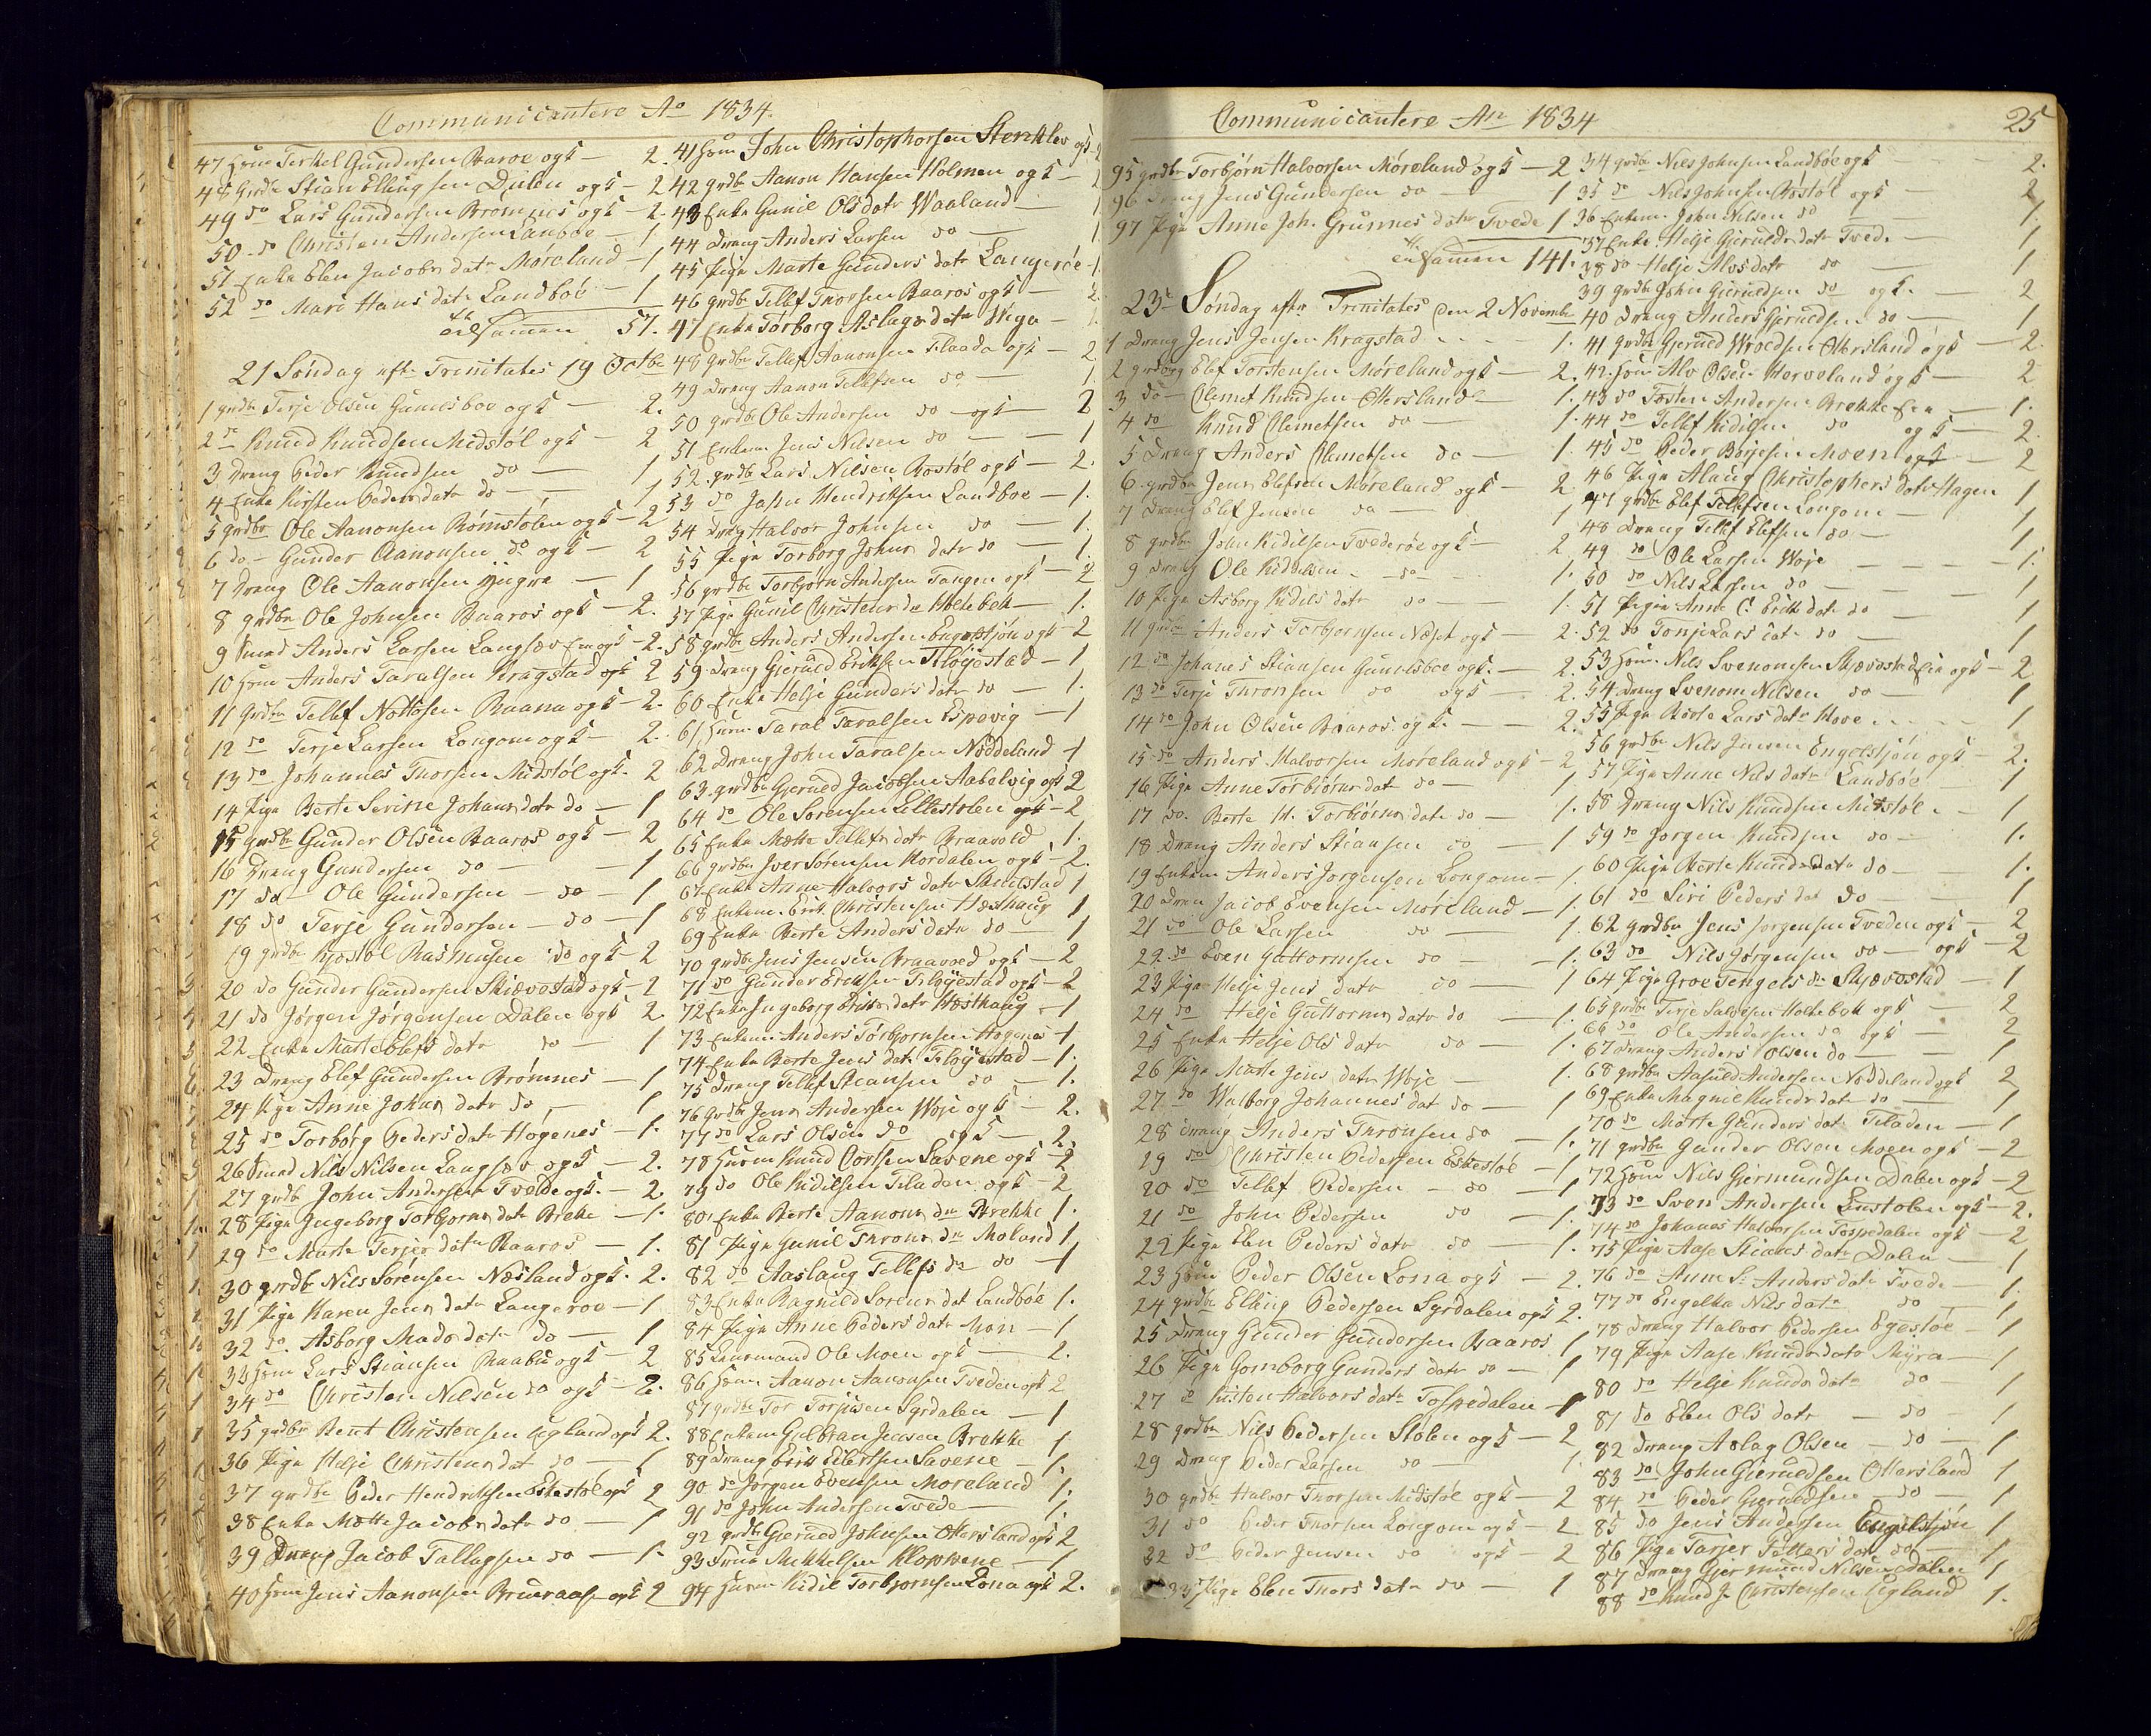 Communicantere Ao 1834.
47 Huusm Terkel Gundersen Baroe og k — 2.
48 grdbr Stian Ellingsen Dalen og k — 2
49 do Lars Gundersen Brømnes og k — 2.
50 do Christen Andersen Lanboe — 1
51 Enke Elen Jacobs datr Møreland — 1
52 do Mari Hans datr Landboe — 1
tilsamen 57.
21 Søndag eftr Trinitates 19 Octbr
1 grdbr Terje Olsen Gunelsboe og k — 2.
2 do Knud Knudsen Midstøl og k — 2
3 Dreng Peder Knudsen do — 1
4 Enke Kirsten Peders datr do — 1
5 grdbr Ole Aanonsen Rømstølen og k — 2
6 do — Gunder Aanonsen do og k — 2
7 Dreng Ole Aanonsen — 1
8 grdbr Ole Johnsen Baaros og k — 2.
9 Anders Larsen Langsæv og k — 2.
10 Huusm Anders Taralsen Kragstad og k 2
11 grdbr Tellef Nottosen Raana og k — 2.
12 do Terje Larsen Longom og k — 2.
13 do Johannes Thorsen Midstøl og k. 2
14 Pige Berte Serine Johans datr do — 1
15 grdbr Gunder Olsen Baaros og k — 2
16 Dreng Gundersen do — 1
17 do — Ole Gundersen — do — 1
18 do Terje Gundersen — do — 1
19 grdbr Rasmusen do og k — 2
20 do Gunder Gundersen Skiævestad og k — 2
21 do Jørgen Jørgensen Dalen og k 2.
22 Enke Marte Elefs datr do — 1
23 Dreng Elef Gundersen Brømnes — 1
24 Pige Anne Johns datr do — 1
25 do Torborg Peders datr Hogenes — 1.
26 Nils Nilsen Langsæv og k — 2.
27 grdbr John Andersen Tvede og k. — 2
28 Pige Ingeborg Torbjørns datr Breke — 1.
29 do Marte Terjes datr Baaros — 1.
30 grdbr Nils Sørensen Næsland og k. 2.
31 Pige Karen Jens datr Langeroe — 1
32 do. Asborg Mads datr do — 1
33 Huusm Lars Stiansen Raabu og k — 2
34 do Christen Nilsen do og k — 2.
35 grdbr Bent Christensen Ugland og k 2.
36 Pige Helje Christens dat do — 1
37 grdbr Peder Hendriksen Eskestøl og k 2
38 Enke Mette Jacobs datr do — 1
39 Dreng Jacob Tallagsen do — 1.
40 Huusm Jens Aanonsen og k 2
41 Huusm John Christophersen Stenklev og k 2
42 grdbr Aanon Hansen Holmen og k —
43 Enke Gunil Ols datr Waaland —
44 Dreng Anders Larsen do — 1
45 Pige Marte Gunders datr Langerøe — 1.
46 grdbr Tellef Thorsen Baaros og k — 2.
47 Enke Torborg Aslags datr Wiga — 1.
48 grdbr Tellef Aanonsen Tilaada og k — 2
49 Dreng Aanon Tellefsen do — 1.
50 grdbr Ole Andersen do — og k — 2
51 Enkem Jens Nilsen do — 1
52. grdbr Lars Nilsen Bostøl og k — 2.
53 do Hendriksen Landboe — 1.
54 Dreng Halvor Johnsen do — 1.
55 Pige Torborg Johns datr do — 1.
56 grdbr Torbjørn Andersen Tangen og k — 2
57 Pige Gunil Christens dr Holtebek — 1.
58 grdbr Anders Andersen Engelstjøn og k — 2
59 Dreng Gjeruld Eriksen Tiløyestad — 1
60 Enke Helje Gunders datr do — 1.
61 Huusm Taral Taralsen Espevig — 1
62 Dreng John Taralsen Noddeland — 1
63. grdbr Gjeruld Jacobsen Aabelvig og k 2
64 do Ole Sørensen Lillestølen og k — 2
65 Enke Mette Tellefs datr Braavold 1.
66 grdbr Iver Sørensen Kordalen og k — 2.
67 Enke Anne Halvors datr 1
68 Enkem. Erik Christensen Hesthaug 1
69 Enke Berte Anders datr do — 1
70 grdbr Jens Jensen Braavold og k — 2
71 do Gunder Eriksen Tiløyestad og k — 2
72 Enke Ingeborg Eriks datr Hesthaug — 1
73 Enkem. Anders Torbjørnsen Hogenes — 1
74 Enke Berte Jens datr Tiløyestad — 1.
75 Dreng Tellef Stiansen do — 1.
76 grdbr Jens Andersen Woje og k — 2.
77 do Lars Olsen do og k — 2.
78 Huusm Knud Savene og k — 2
79 do Ole Kidilsen Tiladen og k — 2
80 Enke Berte Aanons dr Brekke 1.
81 Pige Gunil Throns dr Moland 1
82 do Aaslaug Tellefs dr do — 1
83 Enke Ragnild Sørens dat Landbøe 1.
84 Pige Anne Peders datr — 1
85 Lensmand Ole Moen og k — 2.
86 Huusm Aanon Aanonsen Tveden og k 2
87 grdbr Tor Torjusen Syrdalen — 1
88 Enkem Gulbran Jensen Brekke 1
89 Dreng Erik Eilertsen Savene — 1.
90 do Jørgen Evensen Moreland 1.
91 do John Andersen Tvede — 1.
92 grdbr Gjeruld Johnsen Ottersland og k 2
93 Mikkelsen Klopperne — 1
94 Huusm Kidil Torbjørnsen Lona og k 2.
Communicantere An 1834
25
95 grdbr Torbjørn Halvorsen Møreland og k — 2
96 Dreng Jens Gundersen do — 1
97 Pige Anne Joh. Grunnes datr Tvede 1
tilsamen 141.
23de Søndag eftr Trinitates den 2 November
1 Dreng Jens Jensen Kragstad — 1.
2 Elef Torstensen Møreland og k — 2.
3 do — Clemet Knudsen Ottersland — 1.
4 do Knud Clemetsen do — 1.
5 Dreng Anders Clemetsen do — 1.
6. grdbr Jens Elefsen Møreland og k — 2
7 Dreng Elef Jensen do — 1
8 grdbr John Kidilsen Tvederøe og k — 2
9 Dreng Ole Kidilsen — do — 1.
10 Pige Asborg Kidils datr do — 1.
11 grdbr Anders Torbjørnsen Næset og k — 2.
12 do Johanes Stiansen Gunelsboe og k. — 2.
13 do Terje Thronsen do og k — 2.
14 do John Olsen Baaros og k. — 2.
15 do Anders Halvorsen Møreland og k — 2
16 Pige Anne Torbiørns dat do — 1
17 do. Berte M. Torbiørns datr do — 1.
18 Dreng Anders Stiansen do — 1
19 Enkem Anders Jørgensen Longom — 1.
20 Dren Jacob Evensen Møreland — 1.
21 do Ole Larsen do — 1.
22 do Even Guttormsen do — 1.
23 Pige Helje Jens datr do — 1
24 do Helje Guttorms datr do — 1.
25 Enke Helje Ols datr do — 1.
26 Pige Marte Jens datr Woje — 1.
27 do Walborg Johannes dat do — 1
28 Dreng Anders Thronsen do — 1.
29 do Christen Pedersen Eskestøl — 1
20 do Tellef Pedersen — do — 1
21 do John Pedersen do — 1.
22 Pige Elen Peders datr do — 1.
23 Huusm Peder Olsen Lona og k — 2.
24 grdbr Elling Pedersen Syrdalen og k 2.
25 Dreng Gunder Gundersen Baaros 1
26 Pige Gomborg Gunders datr do — 1
27 do Kisten Halvors datr Tospedalen — 1
28 grdbr Nils Pedersen Stølen og k — 2
29 Dreng Peder Larsen do — 1.
30 grdbr Halvor Thorsen Midstøl og k — 2
31 do Peder Thorsen Longom og k — 2
32 do Peder Jensen do og k — 2
33 Pige Elen Thors datr do — 1
34 grdbr Nils Johnsen Landbøe og k 2.
35 do Nils Johnsen Bostøl og k — 2
36 Enkem. John Nilsen do — 1.
37 Enke. Helje Gjerulds datr Tved. — 1
38 do Helje Alvs datr do — 1
39 grdbr John Gjerulsen do og k. — 2
40 Dreng Anders Gjerulsen do — 1
41 grdbr Gjeruld Wroldsen Ottersland og k — 2.
42. Huusm Alv Olsen Herveland og k — 2
43 do Tosten Andersen Brekke — 1.
44 do Tellef Kidilsen do og k — 2.
45 do Peder Børjesen Moen og k — 2
46 Pige Alaug Christophers datr Hagen 1
47 grdbr Elef Tellefsen Longom — 1
48 Dreng Tellef Elefsen do — 1
49 do Ole Larsen Woje — 1.
50 do Nils Larsen do — 1
51 Pige Anne C. Eriks datr do — 1
52 do Tonje Lars datr do — 1
53 Huusm. Nils Svenomsen Skævestad og k — 2
54 Dreng Svenom Nilsen do — 1
55 Pige Børte Lars datr Hove — 1
56 grdbr Nils Jensen Engelstjøn og k — 2.
57 Pige Anne Nils datr Landbøe — 1
58 Dreng Nils Knudsen Midstøl — 1
59 do Jørgen Knudsen do — 1.
60 Pige Berte Knuds datr do — 1.
61 do Siri Peders dat do — 1
62 grdbr Jens Jørgensen Tveden og k — 2
63 do. Nils Jørgensen do — og k — 2
64 Pige Groe Tengels dr Skjævestad — 1
65 grdbr Terje Salvesen Holtebek og k — 2
66 do Ole Andersen do og k — 2
67 Dreng Anders Olsen do — 1
68 grdbr Aasuld Andersen Noddeland og k 2
69 Enke Magnil Knuds dat do — 1
70 do Marte Gunders dat Tiladen — 1
71 grdbr Gunder Olsen Moen og k — 2
72 Huusm Nils Gjermundsen Dalen og k — 2
73 do Sven Andersen Lustølen og k — 2.
74 do Johanes Halvorsen Tospedalen og k — 2
75 Pige Aase Stians datr Dalen — 1
76 do Anne S. Anders datr Tvede — 1.
77 do Engelka Nils datr do — 1
78 Dreng Halvor Pedersen Egestøl — 1
79 Pige Aase Knuds datr Myra — 1
80 do Helje Knuds datr do — 1
81 do Elen Ols datr — do — 1
82 Dreng Aslag Olsen — do — 1
83 do John Gjeruldsen Ottersland 1
84 do Peder Gjeruldsen — do — 1
85 do Jens Andersen Engelstjøn 1
86 Pige Tarjer Petters datr do — 1
87 Dreng Gjermund Nilsen Dalen 1
88 do Knud Christensen Ugland 1.